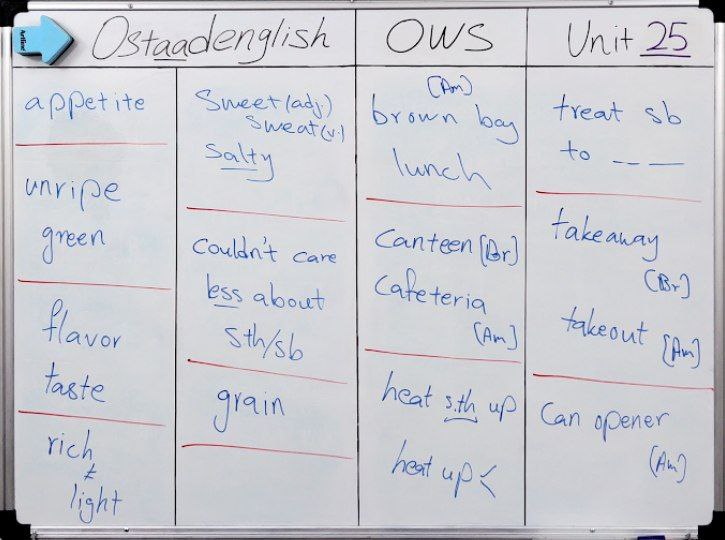 Ostaadenglish
OWS
Unit 25
appetite
unripe
green
flavor
taste
rich
≠
light
Sweet (adj.)
Sweat (v.)
Salty
couldn't care
less about
sth/sb
grain
(Am)
brown bag
lunch
Canteen [Br]
Cafeteria
[Am]
heat s.th up
heat up <
treat sb
to _ _ _
takeaway
[Br]
takeout [Am]
Can opener
(Am)